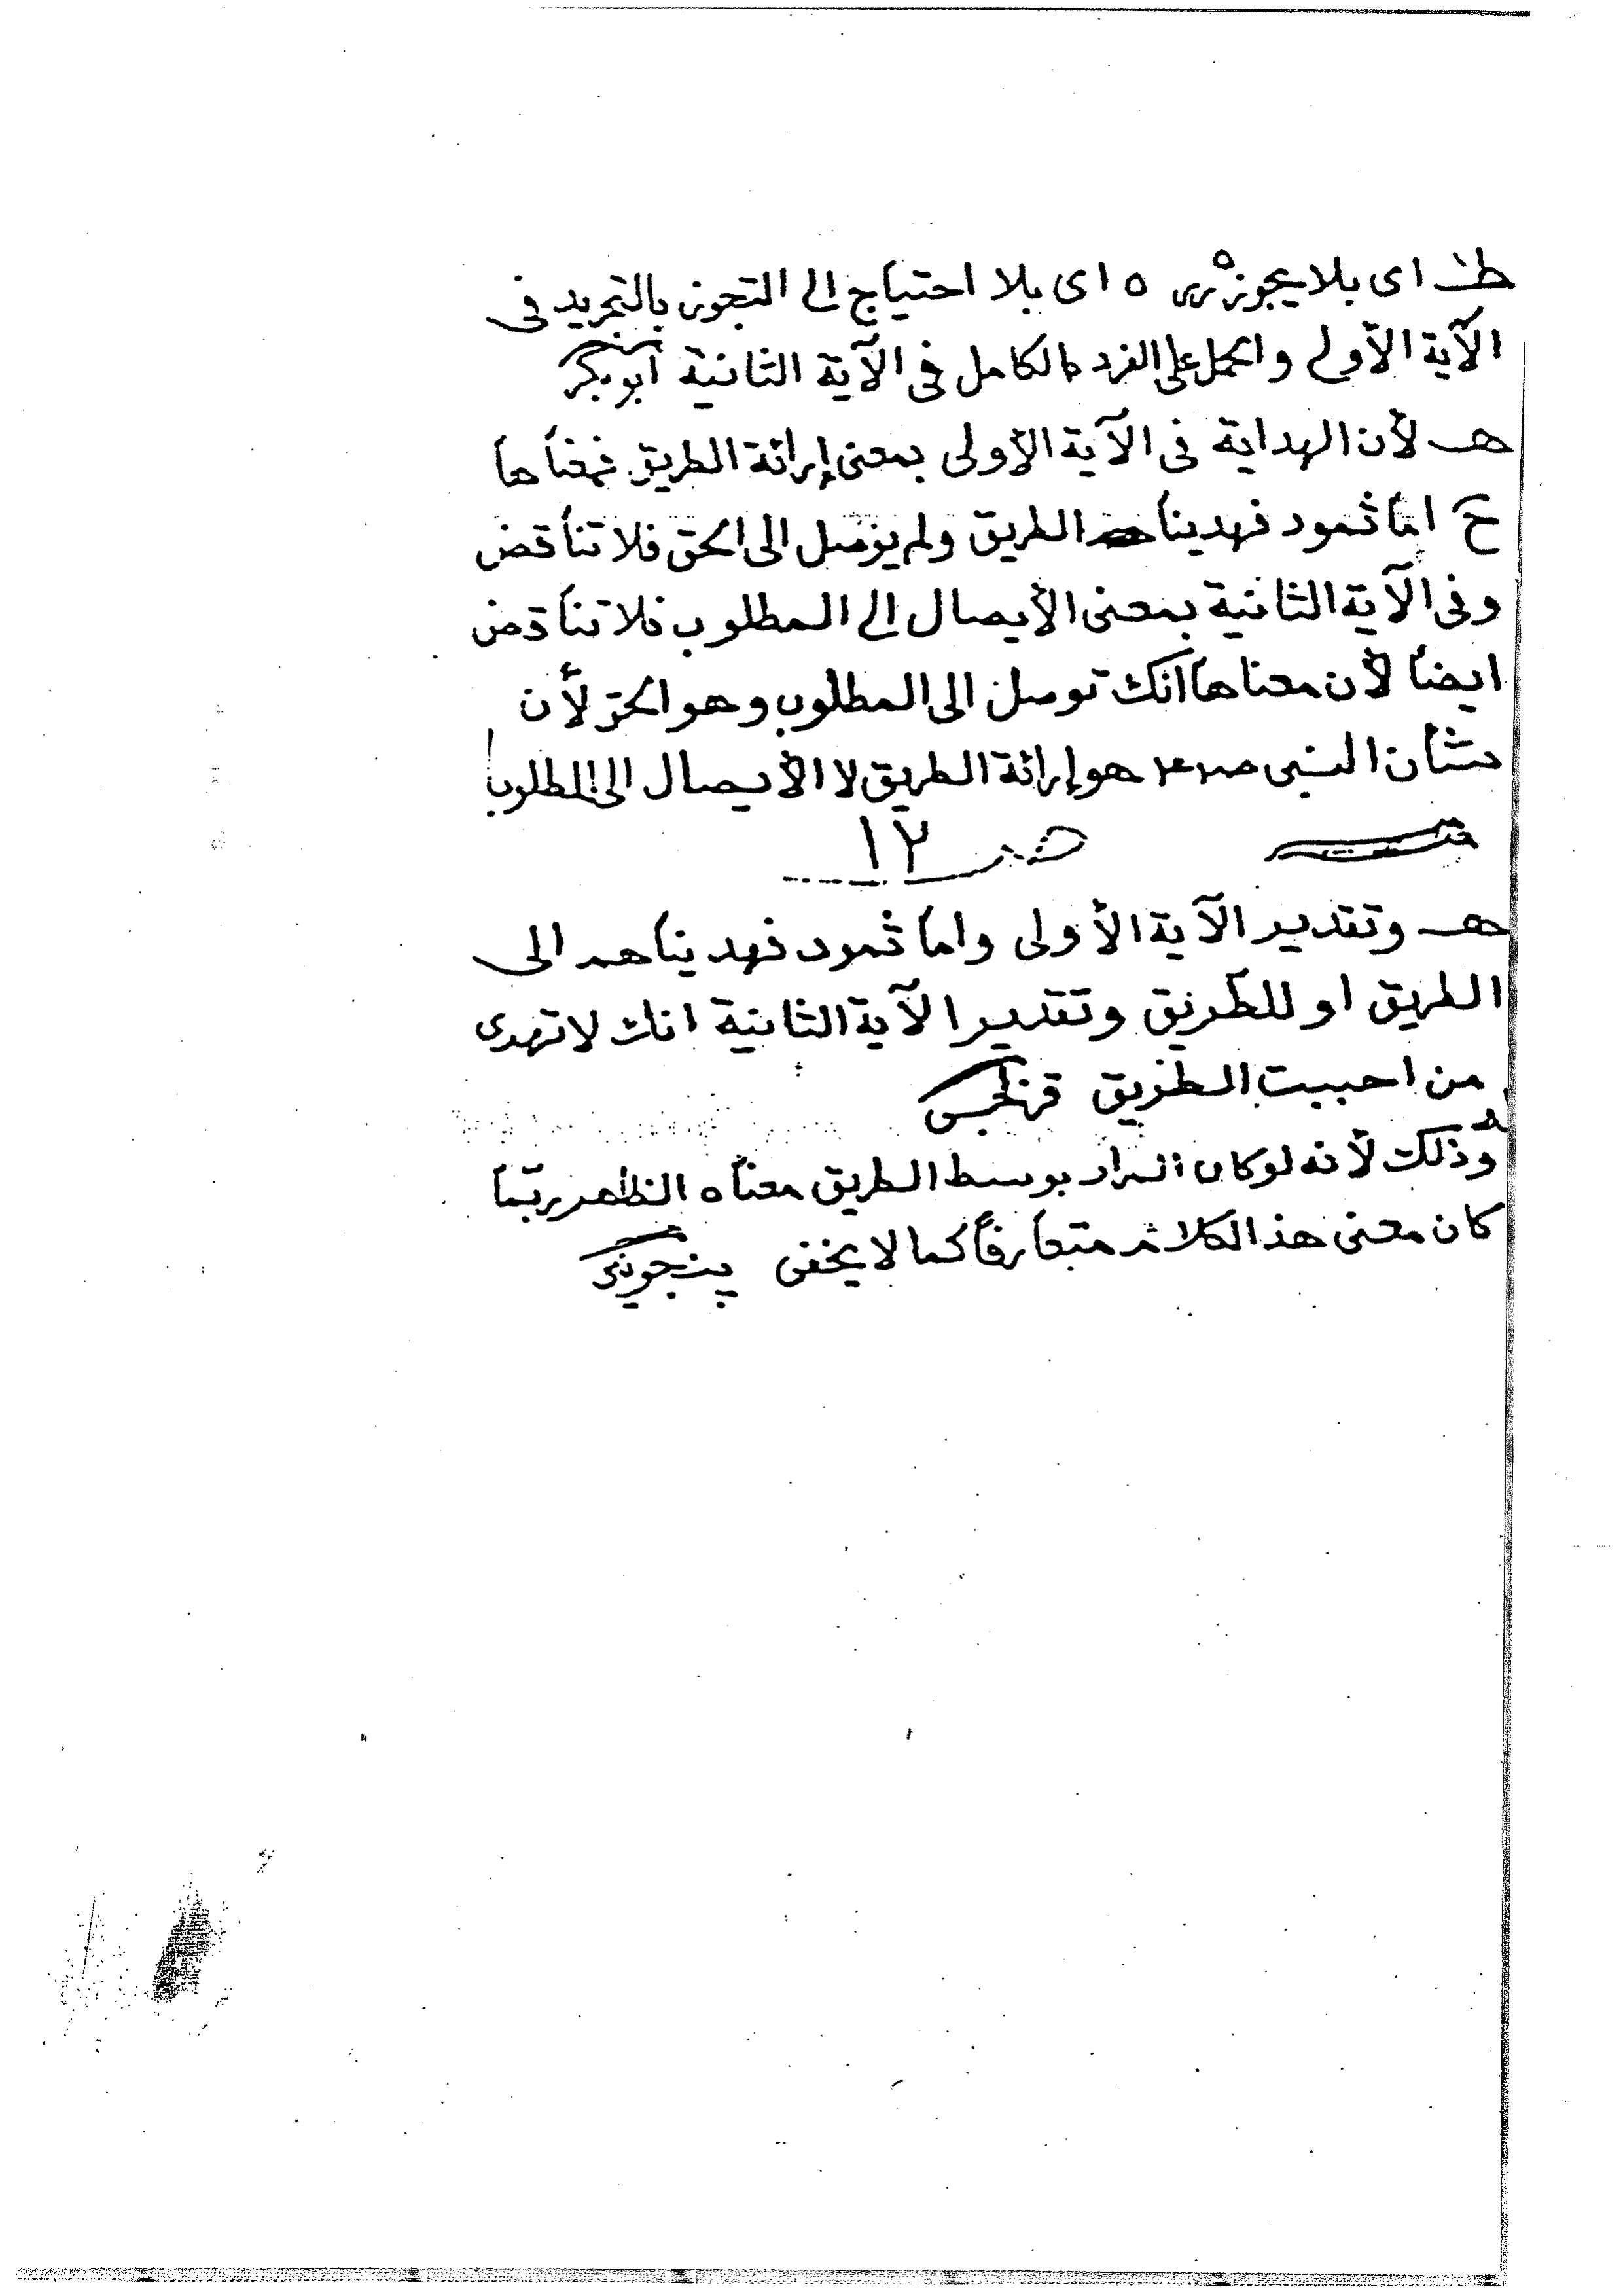 ط اى بلا يجوز ٥ اى بلا احتياج الى التجوز بالتجريد فى
الآية الأولى والحمل على الفرد الكامل فى الآية الثانية ابوبكر
هـ لأن الهداية فى الآية الأولى بمعنى إرائة الطريق فمعناها
ح اما ثمود فهديناهم الطريق ولم يوصل الى الحق فلا تناقض
وفى الآية الثانية بمعنى الأيصال الى المطلوب فلا تناقض
ايضا لأن معناها انك توصل الى المطلوب وهو الحق لأن
شأن النبى ص م هو إرائة الطريق لا الأيصال الى المطلوب
صـ ١٢
هـ وتقدير الآية الأولى واما ثمود فهديناهم الى
الطريق او للطريق وتقدير الآية الثانية انك لا تهدى
من احببت الطريق قزلجى
وذلك لأنه لوكان المراد بوسط الطريق معناه الظاهر ربما
كان معنى هذ الكلام متعارفاً كما لا يخفى پنجوينى